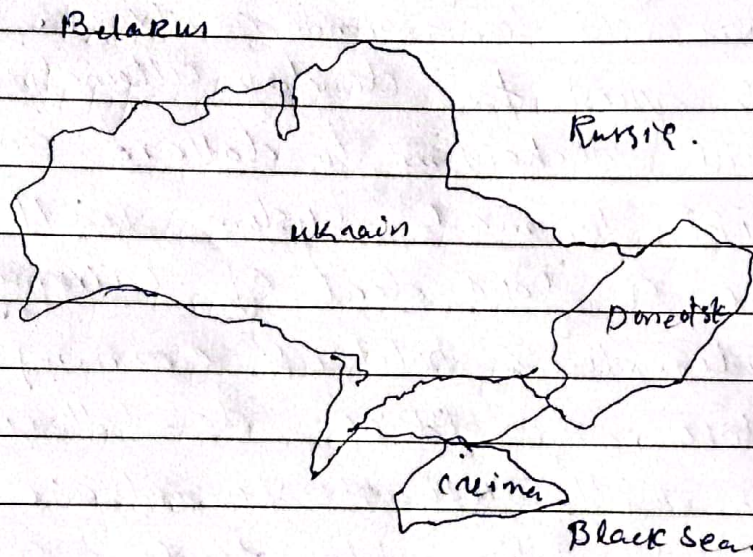 BelaRus
Russia.
ukrain
Doneotsk
Creima
Black Sea